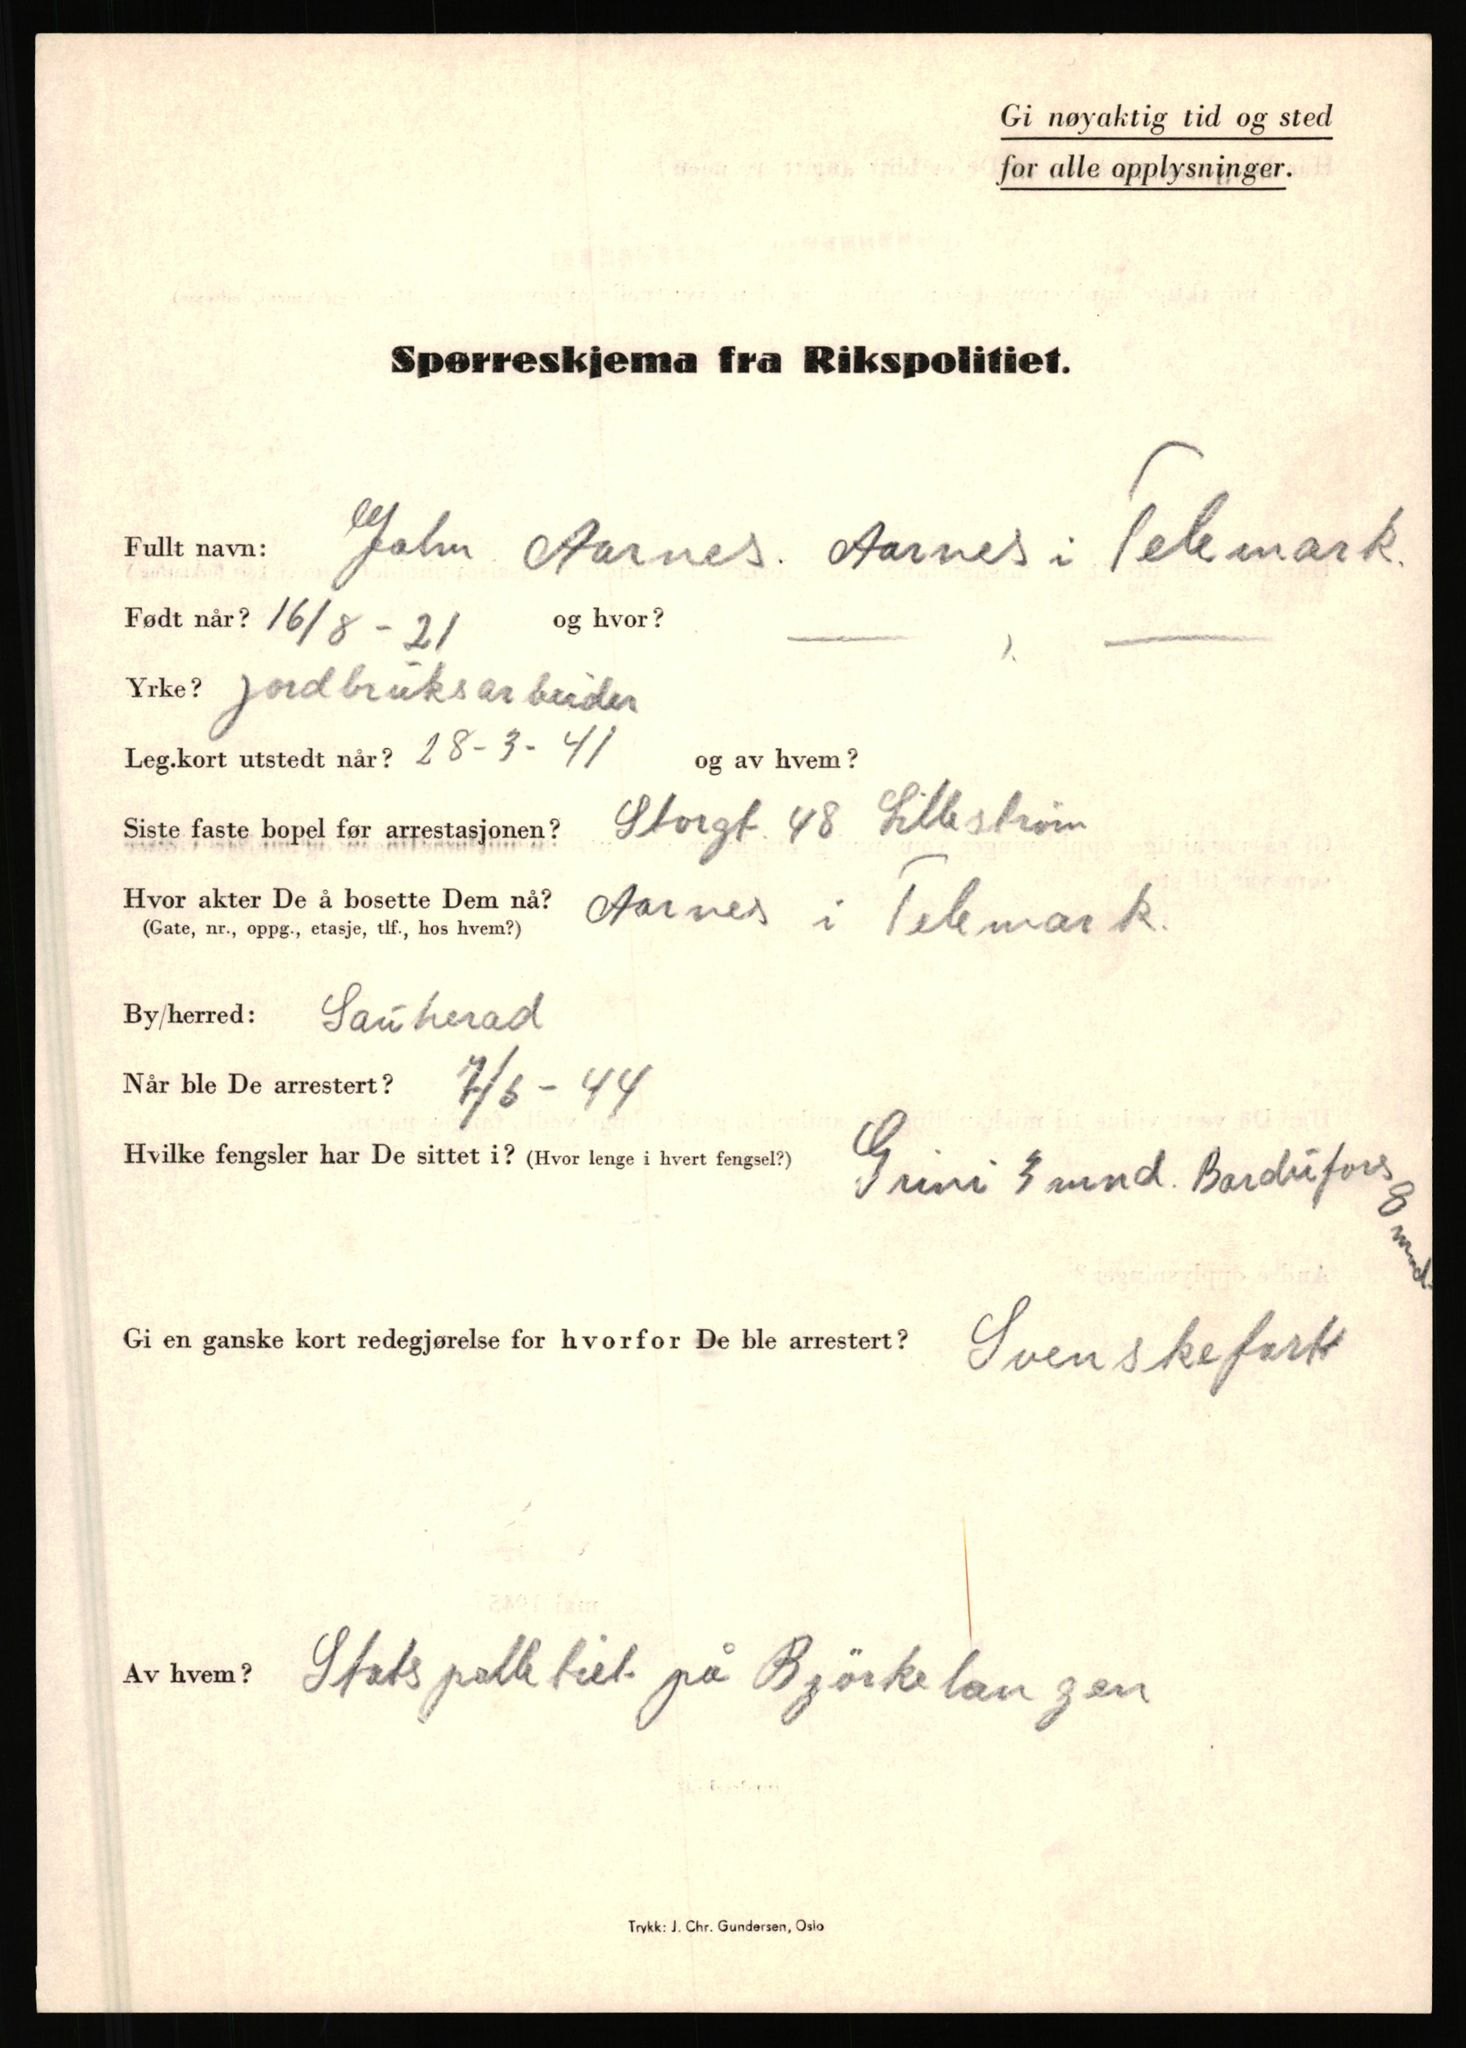 Gi nøyaktig tid og sted
for alle opplysninger.
Spørreskjema fra Rikspolitiet.
Fullt navn: John Aarnes. Aarnes i Telemark.
Født når? 16/8-21 og hvor? — , —
Yrke? jordbruksarbeider
Leg.kort utstedt når? 28-3-41 og av hvem?
Siste faste bopel før arrestasjonen? Storgt. 48 Lilleström
Hvor akter De å bosette Dem nå? Aarnes i Telemark.
(Gate, nr., oppg., etasje, tlf., hos hvem?)
By/herred: Sauherad
Når ble De arrestert? 7/6-44
Hvilke fengsler har De sittet i? (Hvor lenge i hvert fengsel?) Grini 3 mnd. Bardufoss 8 mnd.
Gi en ganske kort redegjørelse for hvorfor De ble arrestert? Svenskefart
Av hvem? Statspolletiet på Björkelangen
Trykk: J. Chr. Gundersen, Oslo